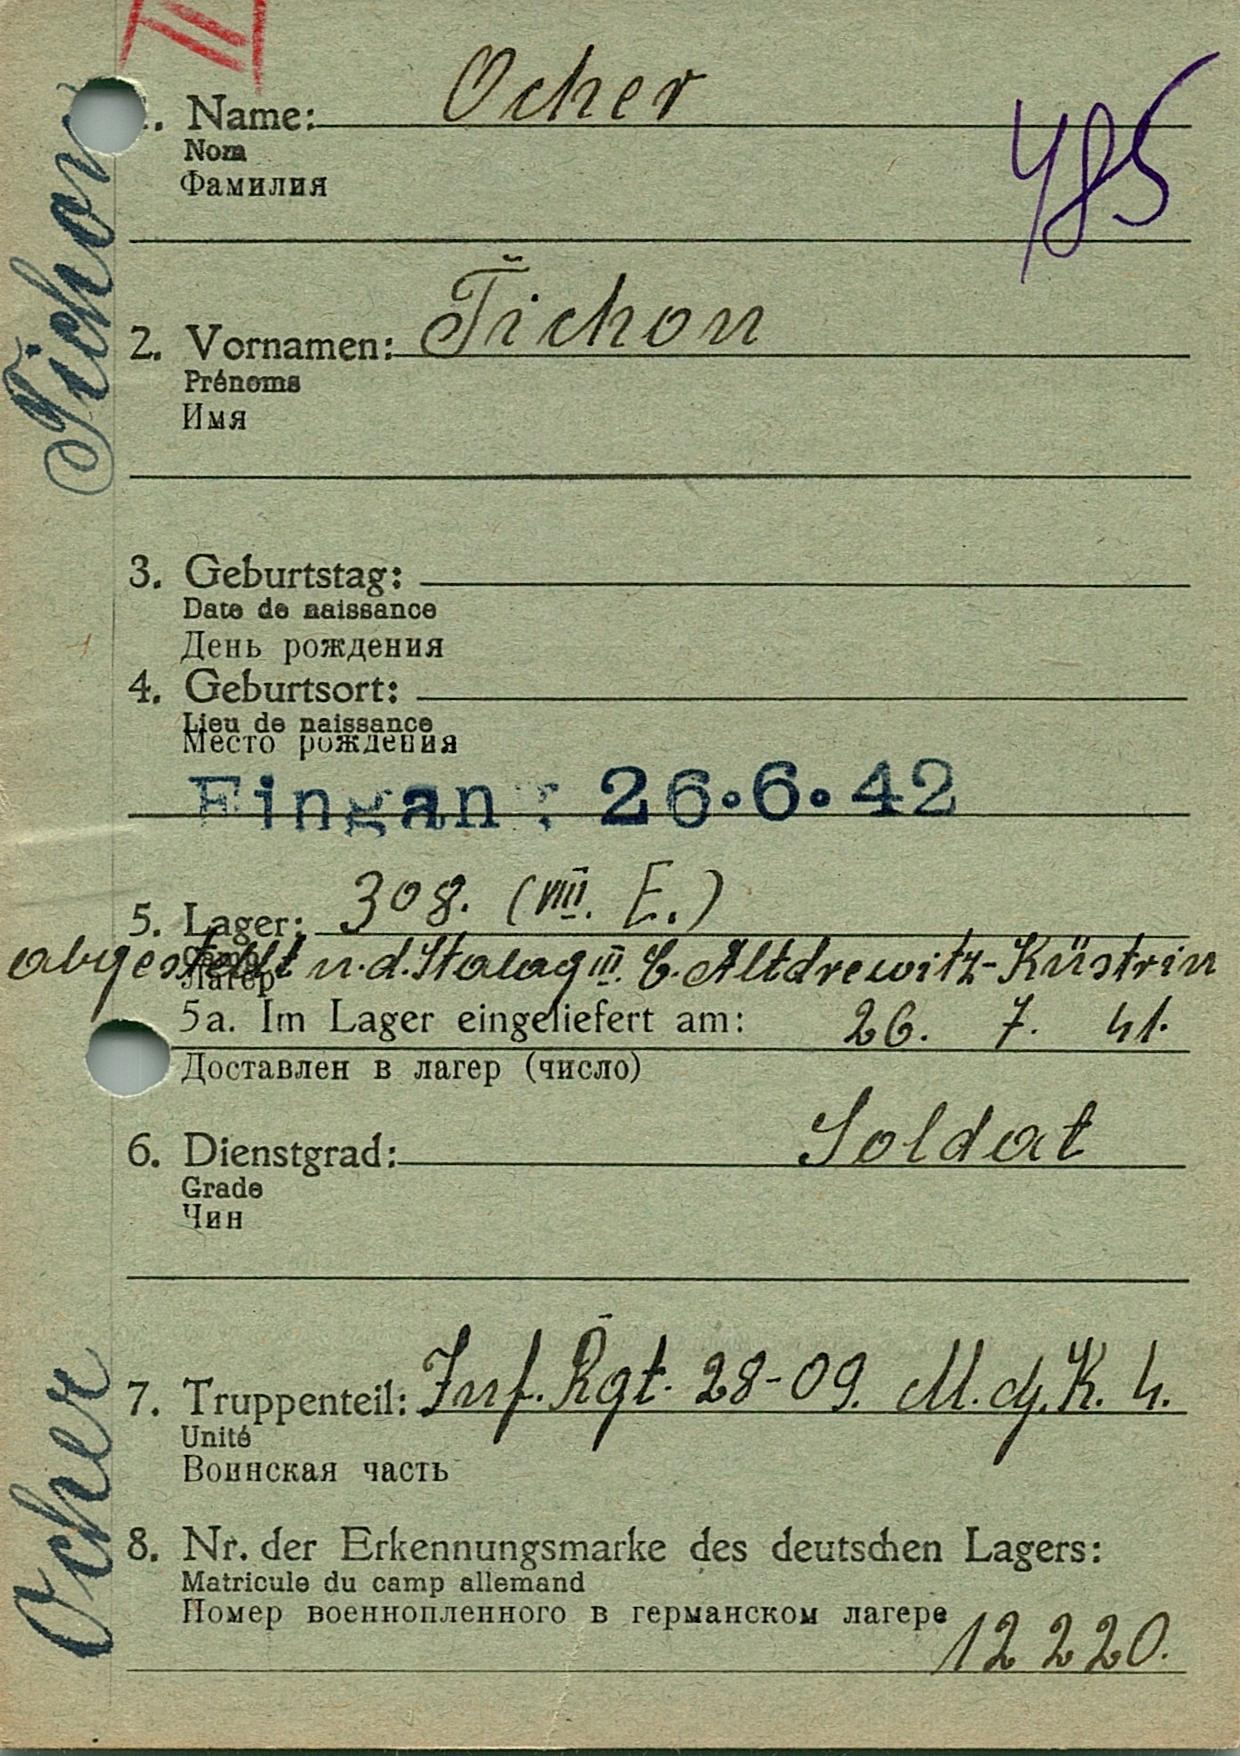 III
1. Name: Ocher
Nom
Фамилия
485
2. Vornamen: Tichon
Prénoms
Имя
3. Geburtstag:
Date de naissance
День рождения
4. Geburtsort:
Lieu de naissance
Место рождения
Eingan : 26.6.42
5. Lager: 308. (VIII. E.)
Camp
abgestellt n.d. Stalag III. C. Altdrewitz-Küstrin
Лагер
5a. Im Lager eingeliefert am: 26. 7. 41.
Доставлен в лагер (число)
6. Dienstgrad: Soldat
Grade
Чин
7. Truppenteil: Inf. Rgt. 28-09. M.g.K. 4.
Unité
Воинская часть
8. Nr. der Erkennungsmarke des deutschen Lagers:
Matricule du camp allemand
Номер военнопленного в германском лагере
12220.
Ocher Tichon